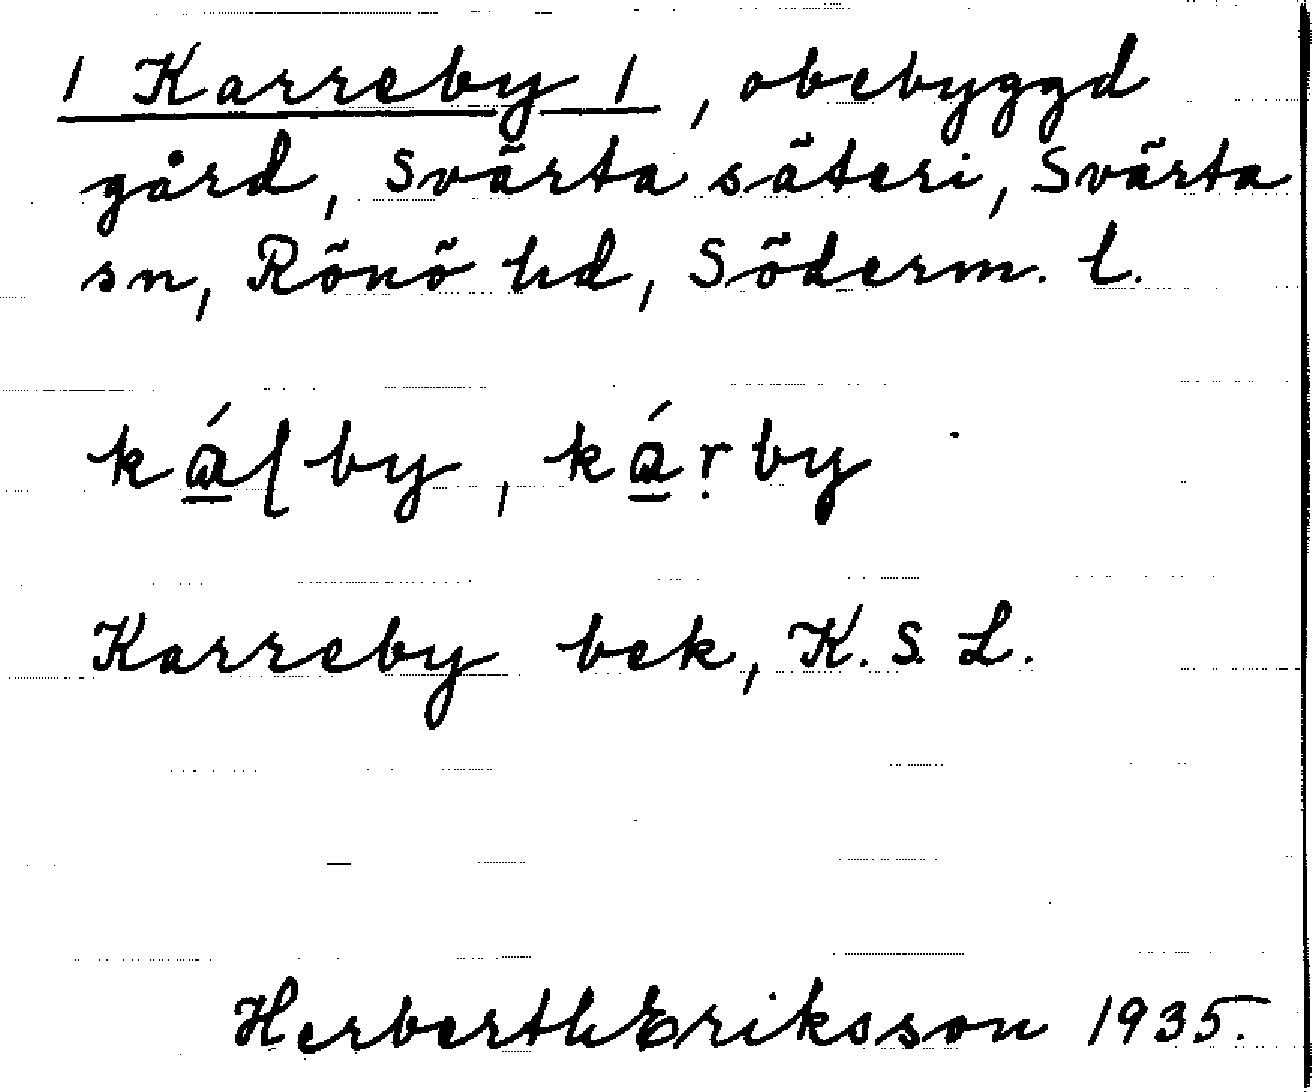 / Karreby /, obebyggd
gård, Svärta säteri, Svärta
sn, Rönö hd, Söderm. l.
ká̱ɭby, ká̱ṛby
Karreby bek, K. S. L.
Herberth Eriksson 1935.